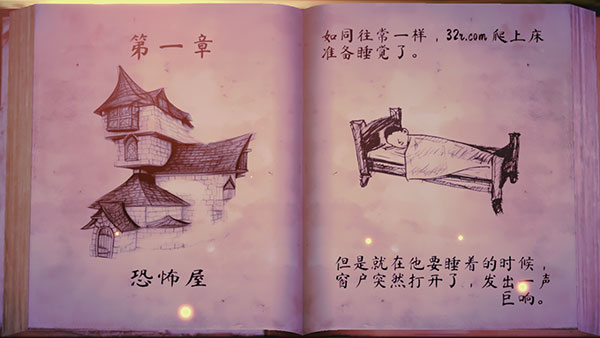 第一章
恐怖屋
如同往常一样，32r.com 爬上床
准备睡觉了。
但是就在他要睡着的时候，
窗户突然打开了，发出一声
巨响。